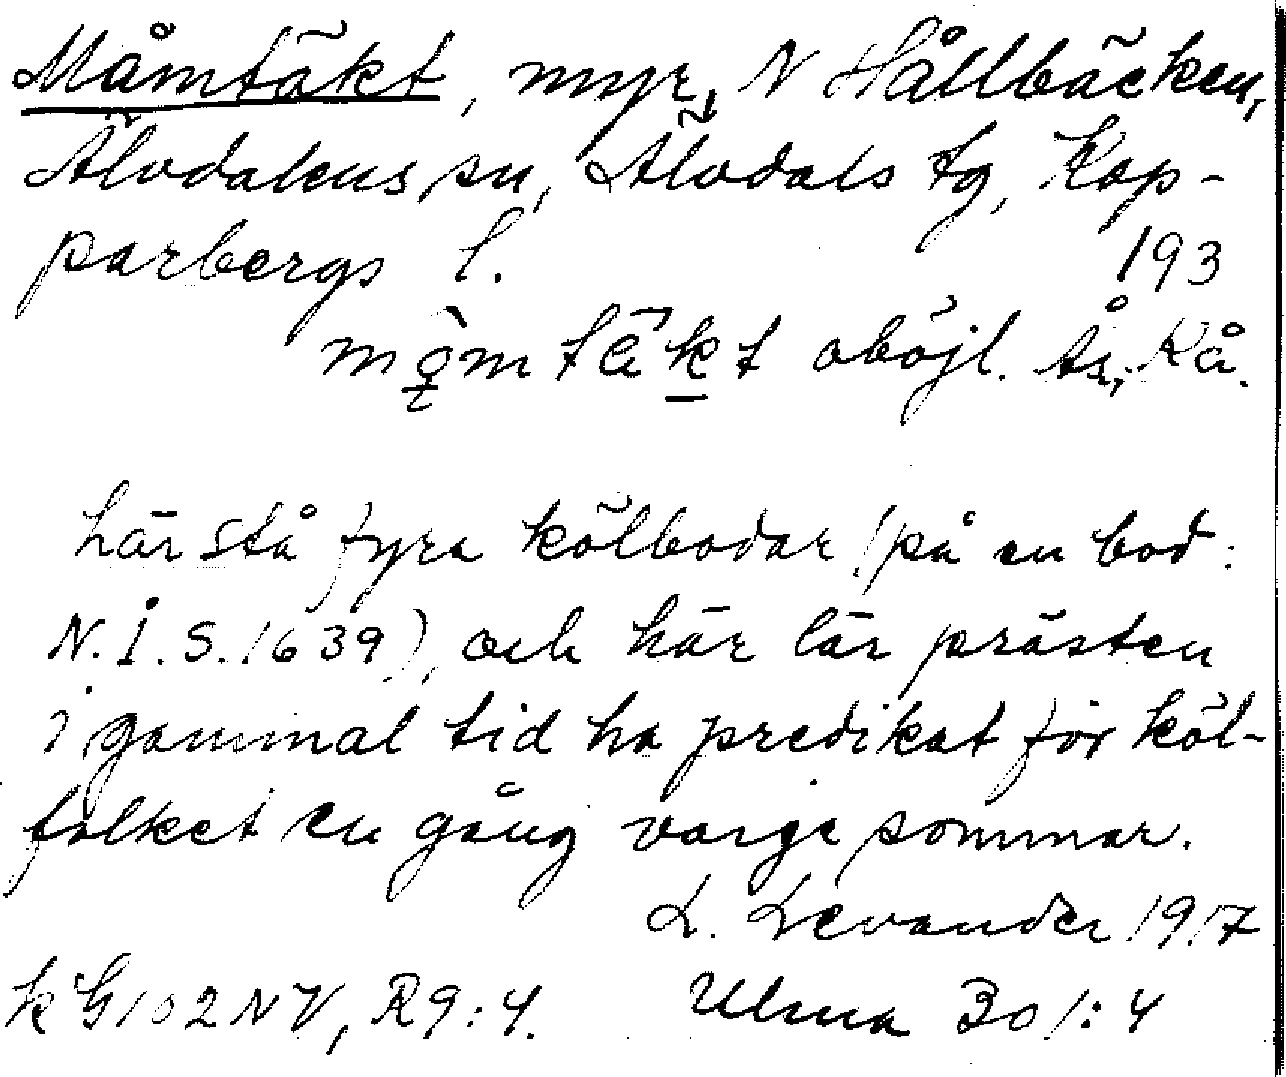 Måmtäkt, myr, N Hållbäcken,
Älvdalens sn, Älvdals tg, Kop-
parbergs l. 193
mǫ̀mtäkt oböjl. Ås, Kå.
här stå fyra kölbodar (på en bod:
N.I.S. 1639), och här lär prästen
i gammal tid ha predikat för köl-
folket en gång varje sommar.
L. Levander 1917
k G102NV, R9:4. Ulma 301:4